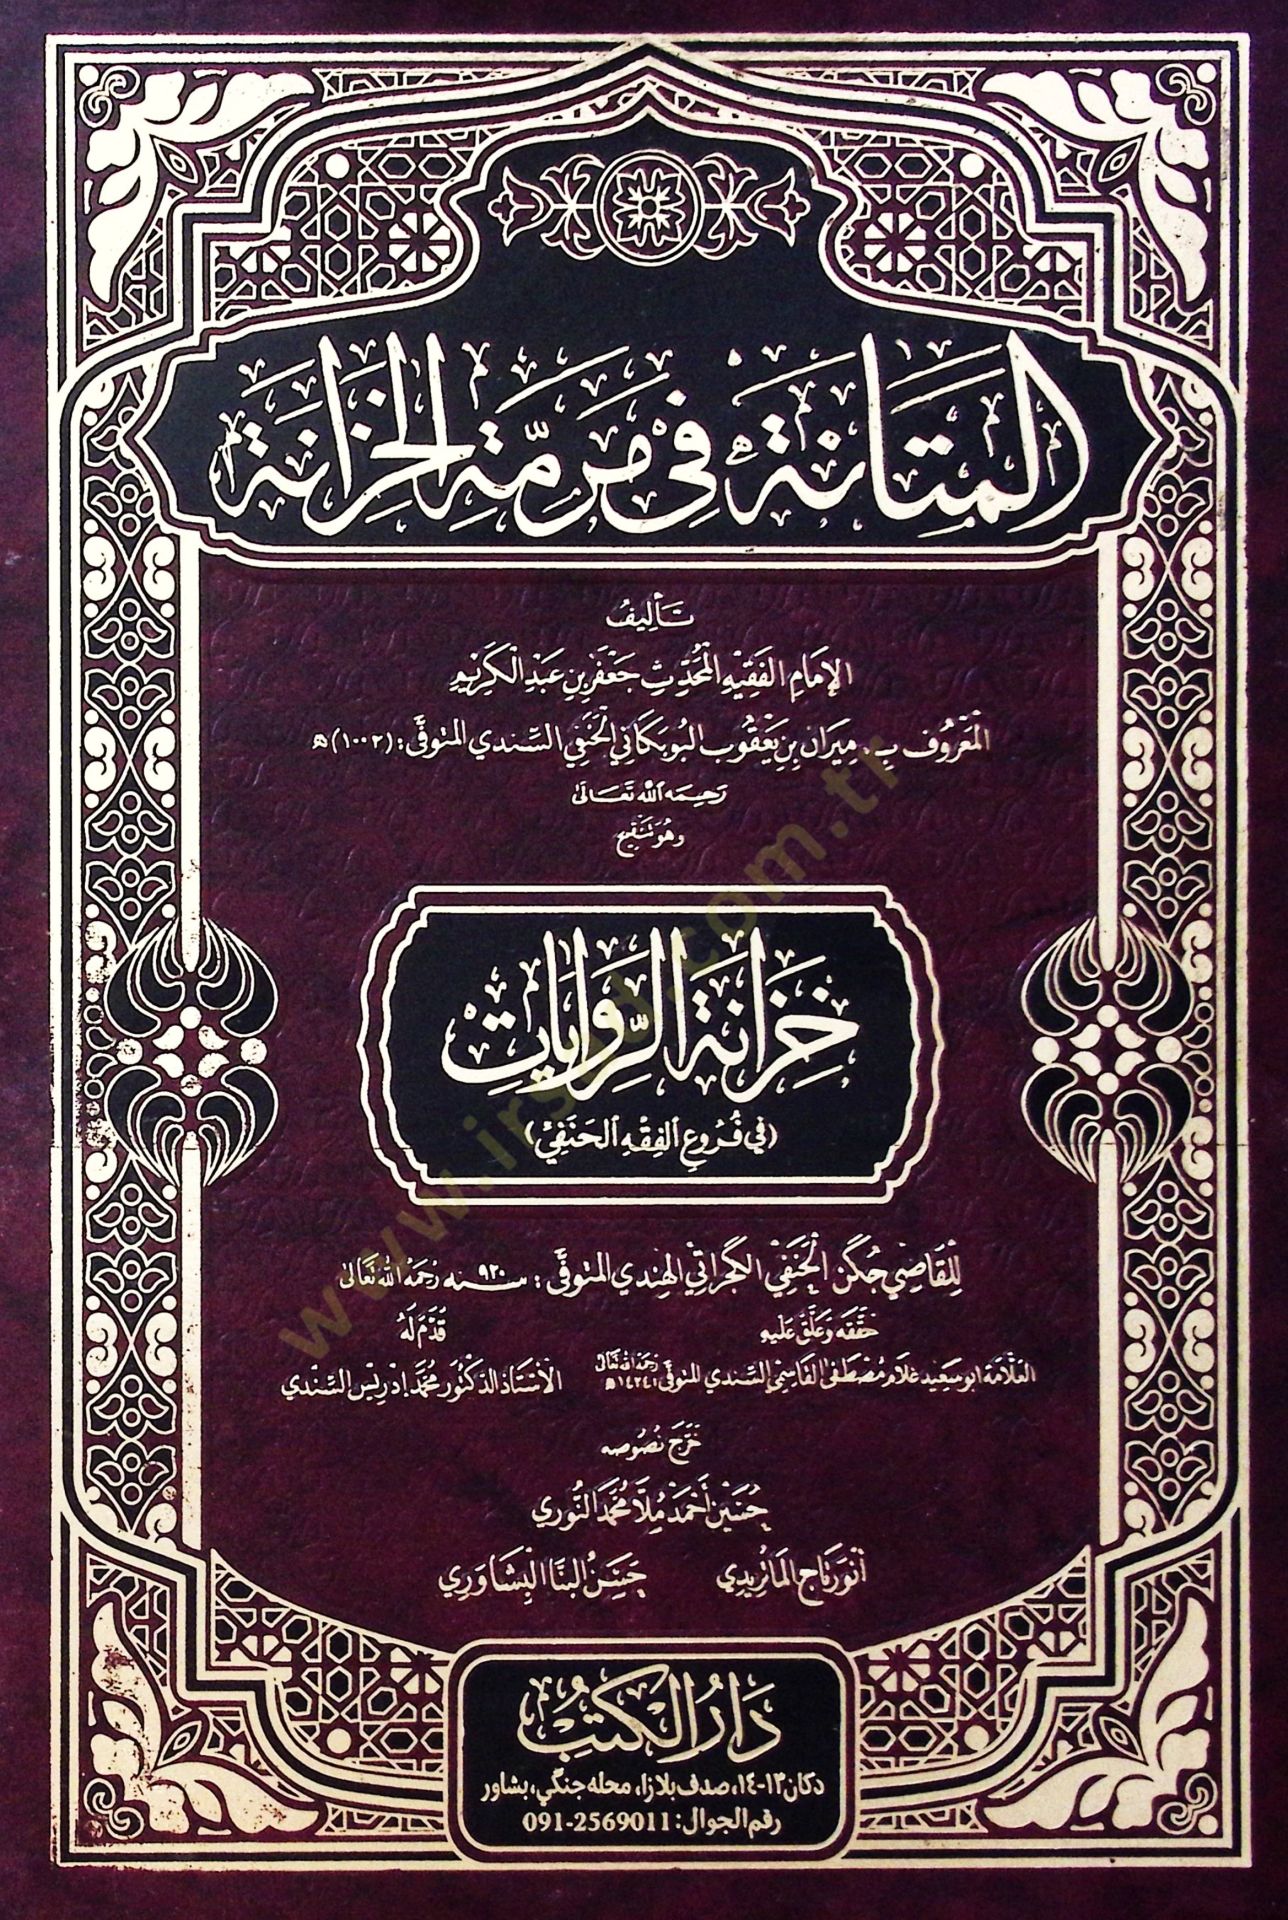 المتانة في مرمة الخزانة
تأليف
الإمام الفقيه المحدث جعفر بن عبد الكريم
المعروف ب. ميران بن يعقوب البوبكاني الحنفي السندي المتوفى: (١٠٠٢)ه
رحمه الله تعالى
وهو تنقيح
خزانة الروايات
(في فروع الفقه الحنفي)
للقاضي جكن الحنفي الگجراتي الهندي المتوفى: سنه ٩٢٠ رحمه الله تعالى
حققه وعلق عليه
قدم له
العلامة ابو سعيد غلام مصطفى القاسمي السندي المتوفى ١٤٢٤ه رحمة الله تعالى
الأستاذ الدكتور محمد ادريس السندي
خرج نصوصه
حسين أحمد ملا محمد النوري
انور تاج الماتريدي
حسن البنا البشاوري
دار الكتب
دكان ١٣-١٤، صدف بلازا، محله جنگي، بشاور
رقم الجوال: 091-2569011
www.irsad.com.tr